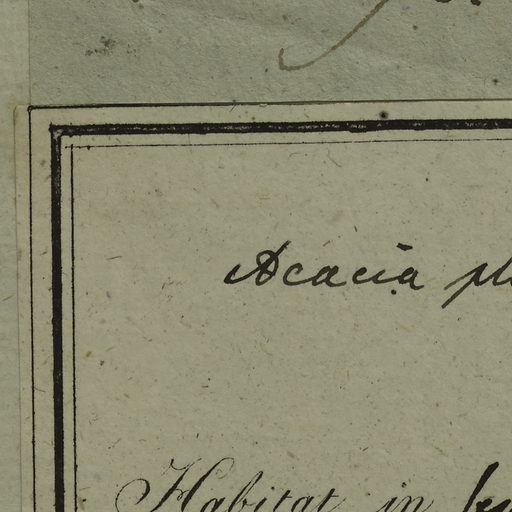 Acacia pl
Habitat in